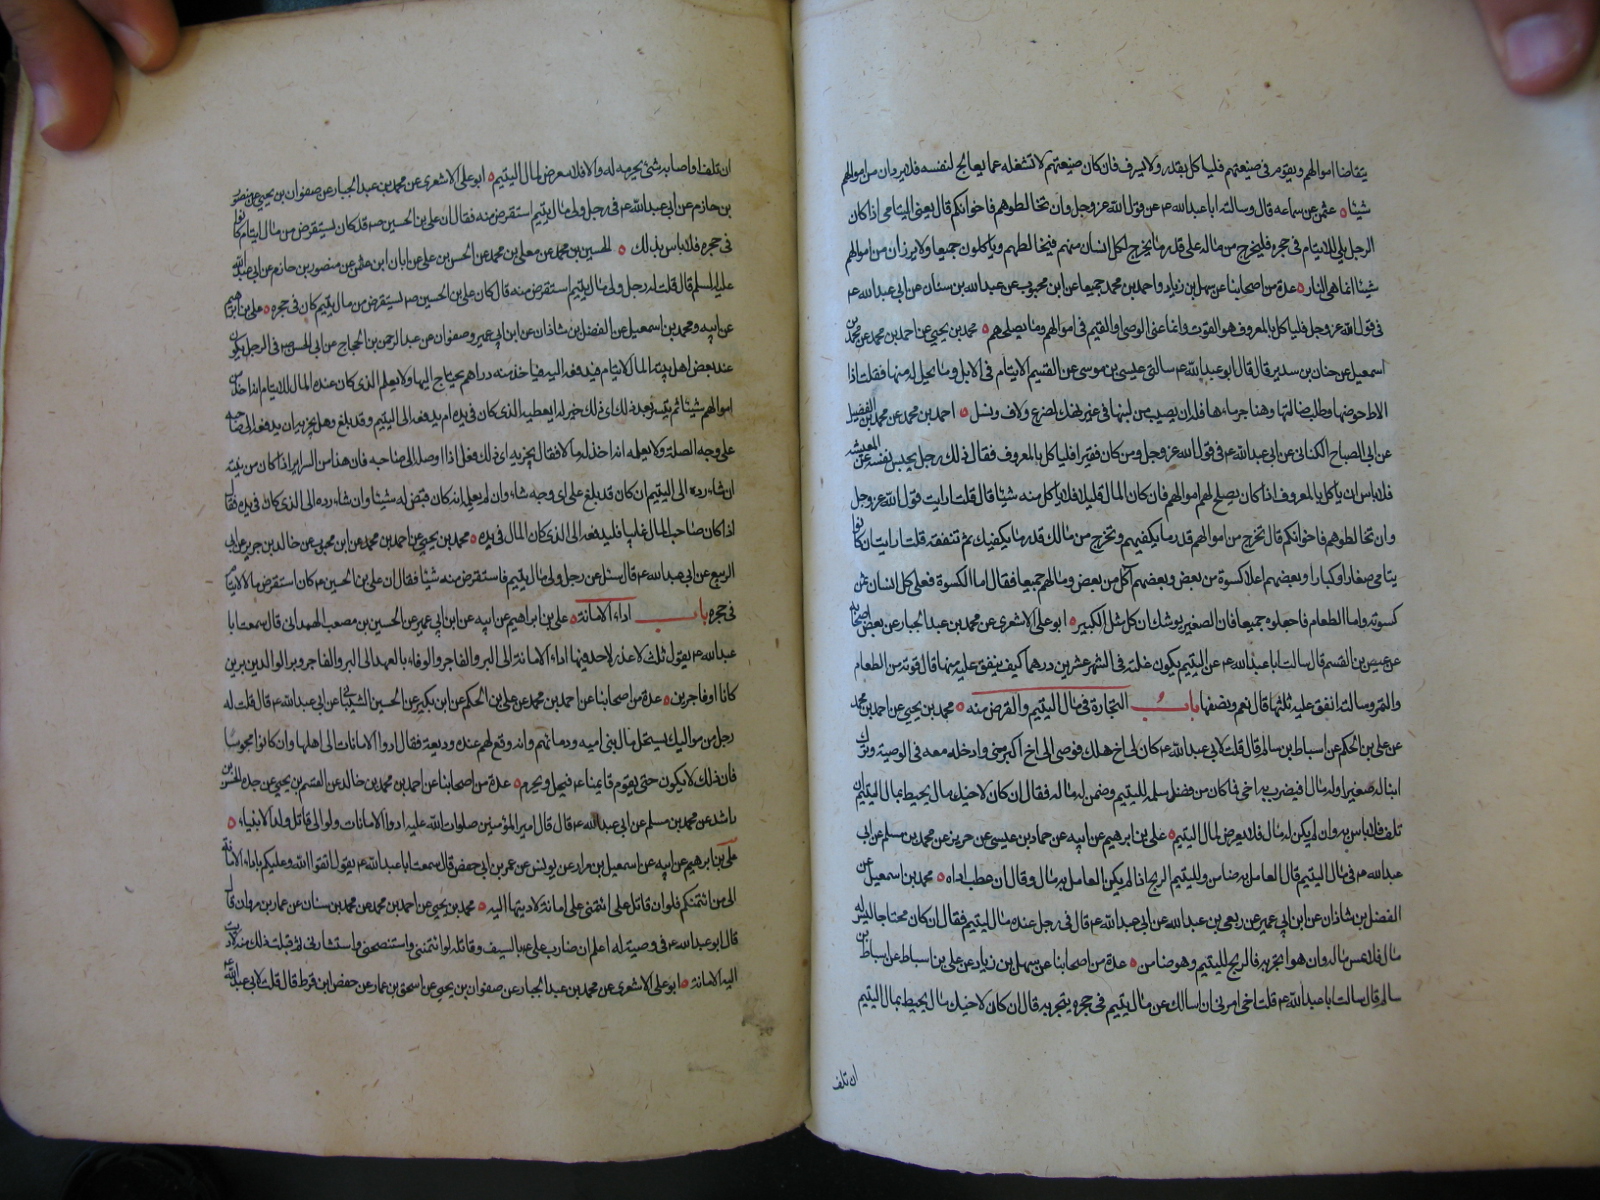 يتقاضا اموالهم ويقوم فى صنيعتهم فلياكل بقدر ولا يسرف فان كان صنيعتهم لا تشغله عما يعالج لنفسه فلا يرزان من اموالهم
شيئا عثمن عن سماعه قال وسالته اباعبدالله ع عن قول الله عز وجل وان تخالطوهم فاخوانكم قال يعنى اليتامى اذا كان
الرجل يلى للايتام فى حجره فليخرج من ماله على قدر ما يخرج لكل انسان منهم فيخالطهم وياكلون جميعا ولا يرزان من اموالهم
شيئا انما هى النار عدة من اصحابنا عن سهل بن زياد واحمد بن محمد جميعا عن ابن محبوب عن عبدالله بن سنان عن ابى عبدالله ع
فى قول الله عز وجل فلياكل بالمعروف هو القوت وانما عنى الوصى او القيم فى اموالهم وما يصلحهم محمد بن يحيى عن احمد بن محمد عن محمد بن
اسمعيل عن حنان بن سدير قال قال ابوعبدالله ع سالنى عيسى بن موسى عن القيم الايتام فى الابل وما يحل له منها فقلت اذا
الاط حوضها وطلب ضالتها وهنا جرباءها فله ان يصيب من لبنها فى غير نهك لضرع ولاف ونسل احمد بن محمد عن محمد بن الفضيل
عن ابى الصباح الكنانى عن ابى عبدالله ع فى قول الله عز وجل ومن كان فقيرا فلياكل بالمعروف فقال ذلك رجل يحبس نفسه عن المعيشه
فلا باس ان ياكل بالمعروف اذا كان يصلح لهم اموالهم فان كان المال قليلا فلا ياكل منه شيئا قال قلت ارايت قول الله عز وجل
وان تخالطوهم فاخوانكم قال تخرج من اموالهم قدر ما يكفيهم وتخرج من مالك قدر ما يكفيك ثم تنفقه قلت ارايت ان كانوا
يتامى صغارا وكبارا وبعضهم اعلا كسوة من بعض وبعضهم آكل من بعض ومالهم جميعا فقال اما الكسوة فعلى كل انسان ثمن
كسوته واما الطعام فاجعلوه جميعا فان الصغير يوشك ان ياكل مثل الكبير ابو على الاشعرى عن محمد بن عبدالجبار عن بعض اصحابه
عن عيص بن القسم قال سالت اباعبدالله ع عن اليتيم يكون غلته فى الشهر عشرين درهما كيف ينفق عليه منها قال قوته من الطعام
والتمر وسالته انفق عليه ثلثها قال نعم ونصفها باب التجارة فى مال اليتيم والقرض منه محمد بن يحيى عن احمد بن محمد
عن على بن الحكم عن اسباط بن سالم قال قلت لابى عبدالله ع كان لى اخ هلك فوصى الى اخ اكبر منى وادخلنى معه فى الوصية وترك
ابنا له صغيرا وله مال افيضرب به اخى فما كان من فضل سلمه لليتيم وضمن له ماله فقال ان كان لاخيك مال يحيط بمال اليتيم ان
تلف فلا باس به وان لم يكن له مال فلا يعرض لمال اليتيم على بن ابرهيم عن ابيه عن حماد بن عيسى عن حريز عن محمد بن مسلم عن ابى
عبدالله ع فى مال اليتيم قال العامل به ضامن ولليتيم الربح اذا لم يكن العامل به مال وقال ان عطب اداه محمد بن اسمعيل عن
الفضل بن شاذان عن ابن ابى عمير عن ربعى بن عبدالله عن ابى عبدالله ع قال فى رجل عنده مال اليتيم فقال ان كان محتاجا ليس له
مال فلا يمس ماله وان هو اتجر به فالربح لليتيم وهو ضامن عدة من اصحابنا عن سهل بن زياد عن على بن اسباط عن اسباط بن
سالم قال سالت اباعبدالله ع قلت اخى امرنى ان اسالك عن مال يتيم فى حجره يتجر به قال ان كان لاخيك مال يحيط بمال اليتيم
ان تلف
ان تلف او اصابه شئ غرمه له والا فلا يعرض لمال اليتيم ابو على الاشعرى عن محمد بن عبدالجبار عن صفوان بن يحيى عن منصور
بن حازم عن ابى عبدالله ع فى رجل ولى مال يتيم استقرض منه فقال ان على بن الحسين ص قد كان يستقرض من مال ايتام كانوا
فى حجره فلا باس بذلك الحسين بن محمد عن معلى بن محمد عن الحسن بن على عن ابان ابن عثمن عن منصور بن حازم عن ابى عبدالله
عليه السلم قال قلت له رجل ولى مال يتيم استقرض منه قال كان على بن الحسين ص يستقرض من مال يتيم كان فى حجره على بن ابراهيم
عن ابيه ومحمد بن اسمعيل عن الفضل بن شاذان عن ابن ابى عمير وصفوان عن عبدالرحمن بن الحجاج عن ابى الحسن ع فى الرجل يكون
عند بعض اهل بيته المال لايتام فيدفعه اليه فياخذ منه دراهم يحتاج اليها ولا يعلم الذى كان عنده المال للايتام انه اخذ من
اموالهم شيئا ثم يتيسر بعد ذلك اى ذلك خير له ايعطيه الذى كان فى يده ام يدفعه الى اليتيم وقد بلغ وهل يجزيه ان يدفعه الى صاحبه
على وجه الصلة ولا يعلمه انه اخذ له مالا فقال يجزيه اى ذلك فعل اذا اوصله الى صاحبه فان هذا من السراير اذا كان من نيته
ان شاء رده الى اليتيم ان كان قد بلغ على اى وجه شاء وان لم يعلمه انه كان قبض له شيئا وان شاء رده الى الذى كان فى يده
اذا كان صاحب المال غايبا فليدفعه الى الذى كان المال فى يده محمد بن يحيى عن احمد بن محمد عن ابن محبوب عن خالد بن جرير عن ابى
الربيع عن ابى عبدالله ع قال سئل عن رجل ولى مال يتيم فاستقرض منه شيئا فقال ان على بن الحسين ع كان استقرض مالا لايتام
فى حجره باب اداء الامانة على بن ابراهيم عن ابيه عن ابن ابى عمير عن الحسين بن مصعب الهمدانى قال سمعت ابا
عبدالله ع يقول ثلث لا عذر لاحد فيها اداء الامانة الى البر والفاجر والوفاء بالعهد الى البر والفاجر وبر الوالدين برين
كانا او فاجرين عدة من اصحابنا عن احمد بن محمد عن على بن الحكم عن ابن بكير عن الحسين الشيبانى عن ابى عبدالله ع قال قلت له
رجل من مواليك يستحل مال بنى اميه ودمائهم وانه وقع لهم عنده وديعة فقال ادوا الامانات الى اهلها وان كانوا مجوسا
فان ذلك لا يكون حتى يقوم قايمنا ع فيحل ويحرم عدة من اصحابنا عن احمد بن محمد بن خالد عن القسم بن يحيى عن جده الحسن بن
راشد عن محمد بن مسلم عن ابى عبدالله ع قال قال امير المؤمنين صلوات الله عليه ادوا الامانات ولو الى قاتل ولد الانبياء
على بن ابرهيم عن ابيه عن اسمعيل بن مرار عن يونس عن عمر بن ابى حفص قال سمعت اباعبدالله ع يقول اتقوا الله وعليكم باداء الامانة
الى من ائتمنكم فلو ان قاتل على ائتمنى على امانة لاديتها اليه محمد بن يحيى عن احمد بن محمد عن محمد بن سنان عن عمار بن مروان قال
قال ابوعبدالله ع فى وصيته له اعلم ان ضارب على ع بالسيف وقاتله لو ائتمننى واستنصحنى واستشارنى ثم قبلت ذلك منه لاديت
اليه الامانة ابو على الاشعرى عن محمد بن عبدالجبار عن صفوان بن يحيى عن اسحق بن عمار عن حفص ابن قرط قال قلت لابى عبدالله ع